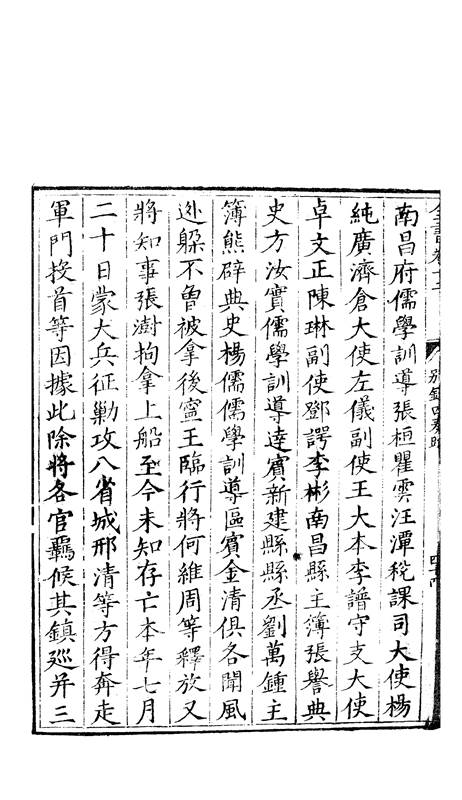 南昌府儒學訓導張桓瞿雲汪潭稅課司大使楊
純廣濟倉大使左儀副使王大本李譜守支大使
卓文正陳琳副使鄧諤李彬南昌縣主簿張譽典
史方汝實儒學訓導達賓新建縣縣丞劉萬鍾主
簿熊辟典史楊儒儒學訓導區賓金清俱各聞風
迯躱不曾被拿後寧王臨行將何維周等釋放又
將知事張澍拘拿上船至今未知存亡本年七月
二十日蒙大兵征勦攻入省城邢清等方得奔走
軍門投首等因據此除將各官羈候其鎮廵并三